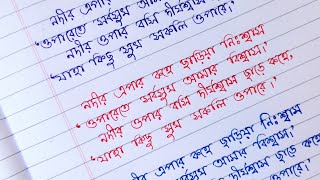 নদীর এপার
'ওপারেতে সর্বসুখ আমা
নদীর ওপার বসি দীর্ঘশ্বাস
'যাহা কিছু সুখ সকলি ওপারে।'
নদীর এপার কহে ছাড়িয়া নিঃশ্বাস
'ওপারেতে সর্বসুখ আমার বিশ্বাস।'
নদীর ওপার বসি দীর্ঘশ্বাস ছাড়ে কহে,
'যাহা কিছু সুখ সকলি ওপারে।'
নদীর এপার কহে ছাড়িয়া নিঃশ্বাস
সর্বসুখ আমার বিশ্বাস।'
দীর্ঘশ্বাস ছাড়ে কহে,
সকলি ওপারে।'